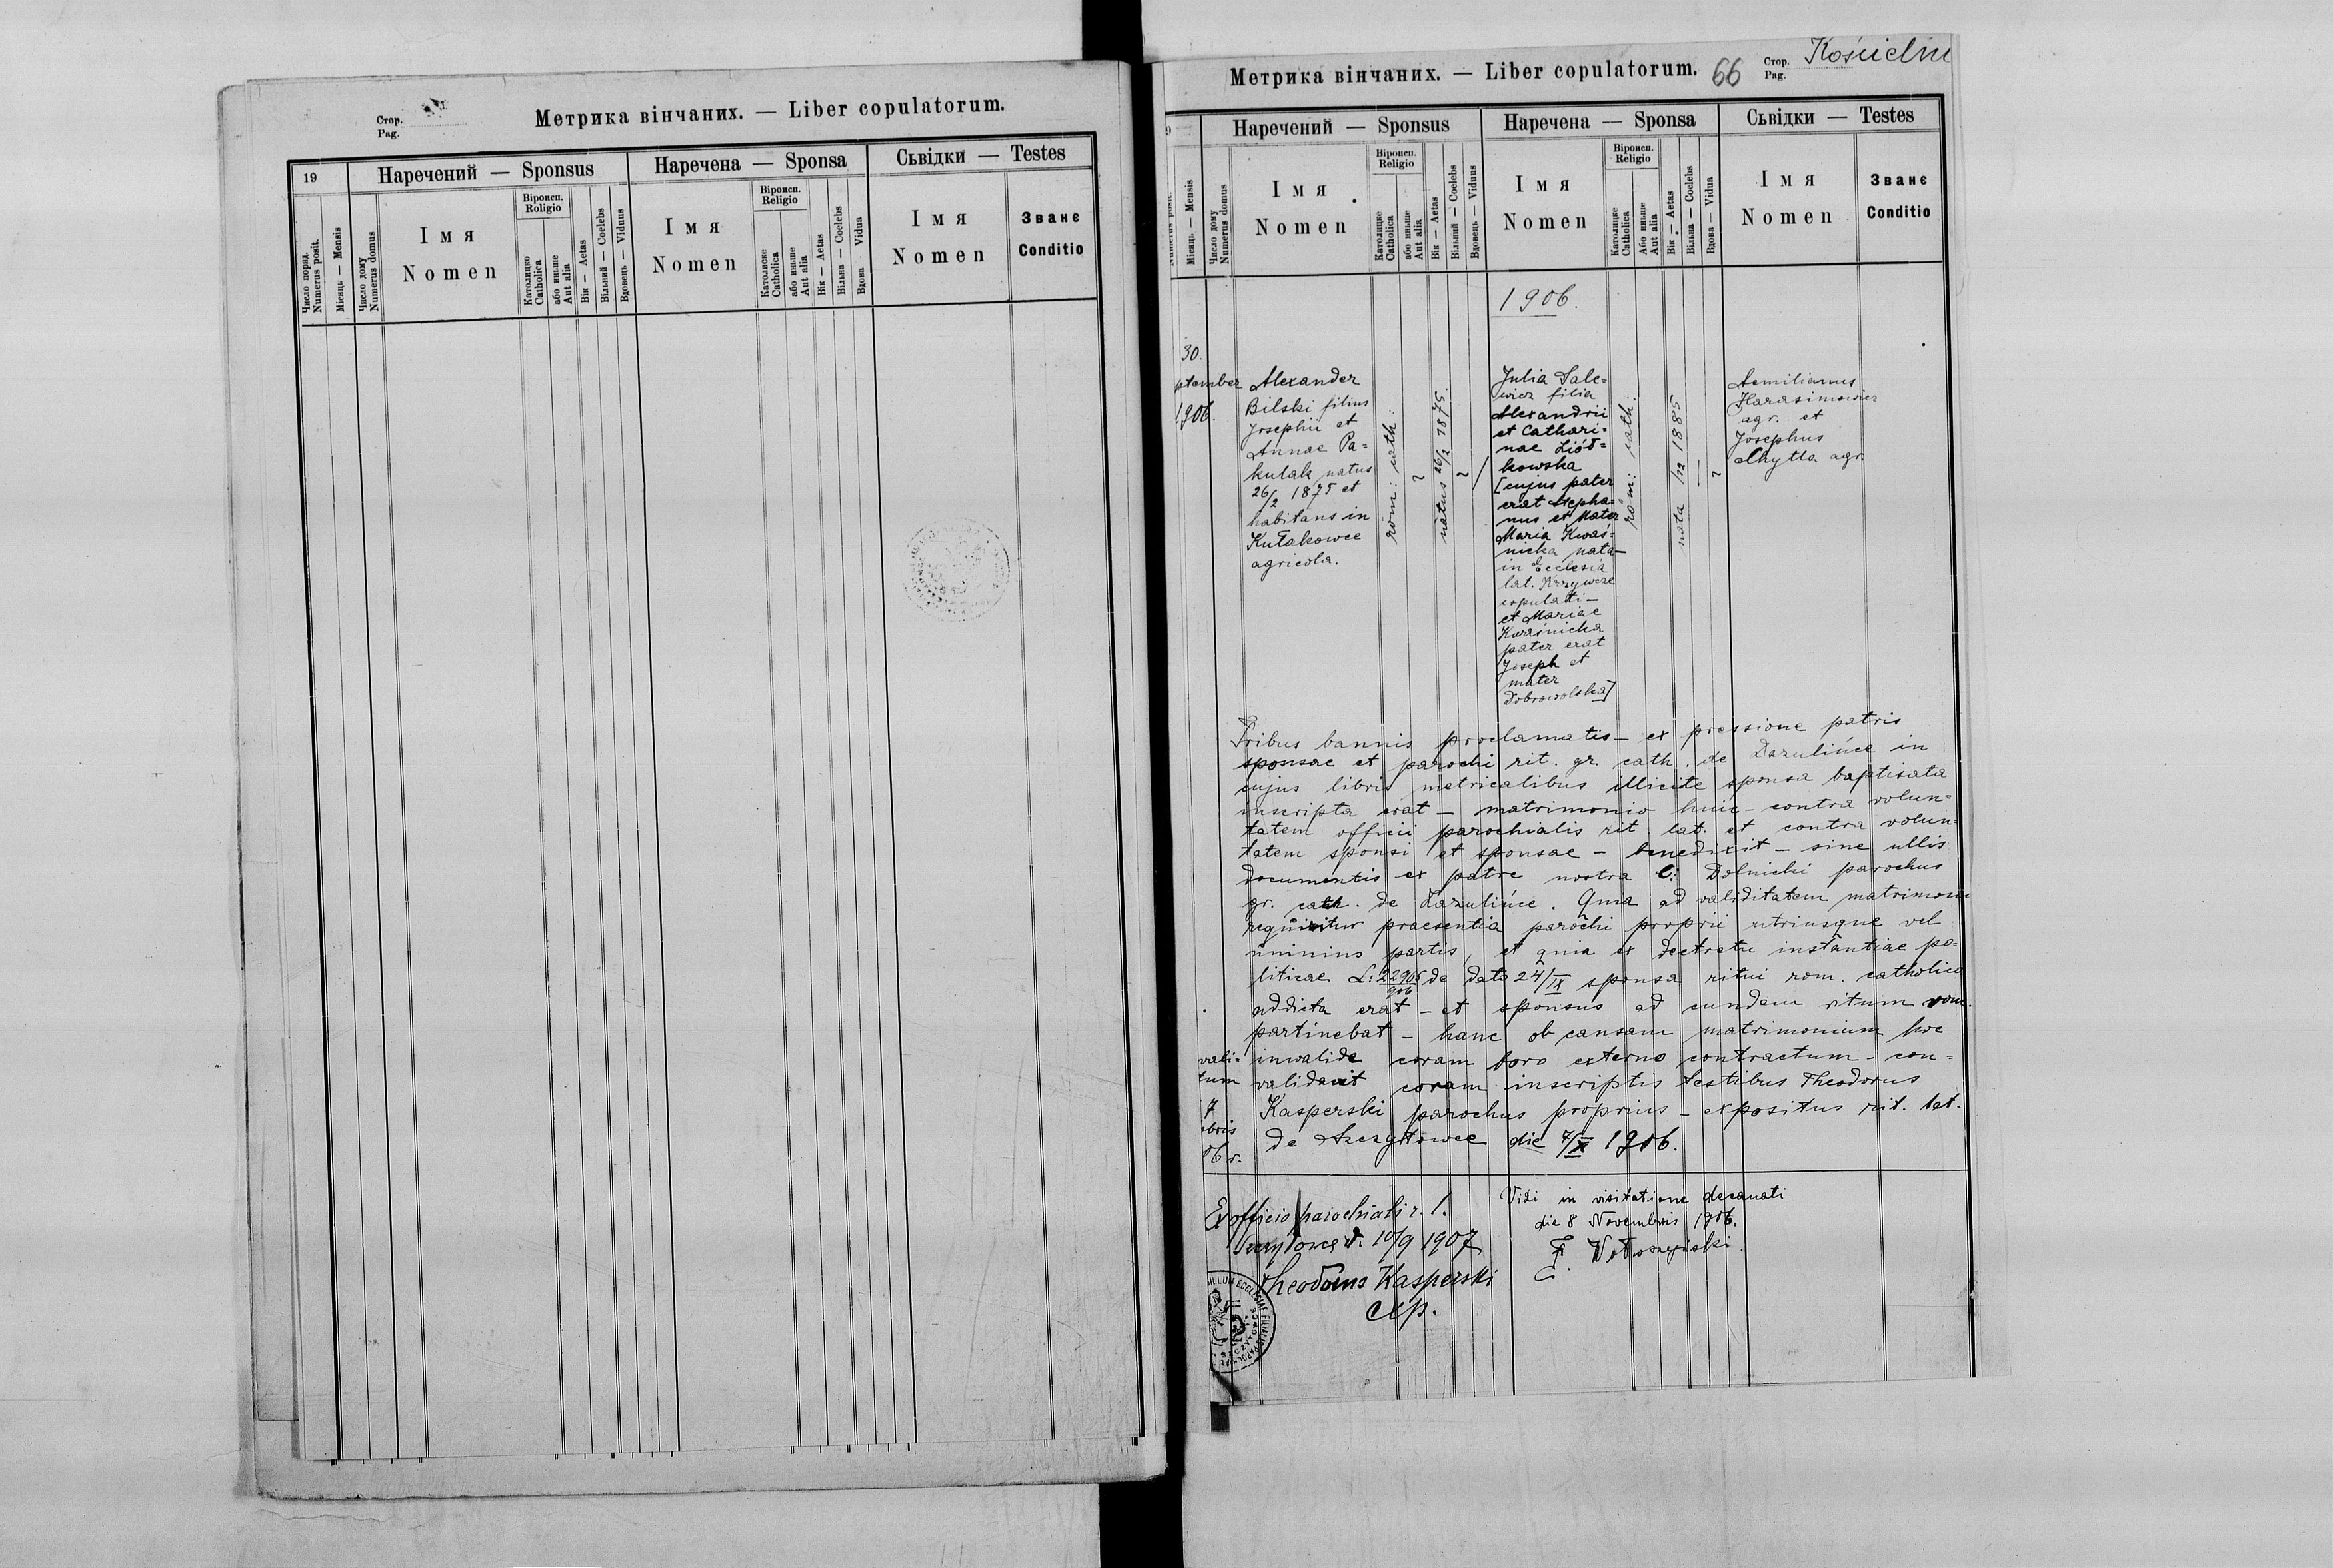 Стор.
Pag.
Метрика вінчаних. — Liber copulatorum.
19
Наречений — Sponsus
Наречена — Sponsa
Сьвідки — Testes
Число поряд.
Numerus posit.
Місяць — Mensis
Число дому
Numerus domus
Імя
Nomen
Віроисп.
Religio
Католицке
Catholica
або иньше
Aut alia
Вік — Aetas
Вільний — Coelebs
Вдовець — Viduus
Імя
Nomen
Віроисп.
Religio
Католиске
Catholica
або иньше
Aut alia
Вік — Aetas
Вільна — Coelebs
Вдова — Vidua
Імя
Nomen
Званє
Conditio
Метрика вінчаних. — Liber copulatorum.
66
Стор.
Pag.
Наречений — Sponsus
Наречена — Sponsa
Сьвідки — Testes
Numerus posit.
Місяць — Mensis
Число дому
Numerus domus
Імя
Nomen
Віроисп.
Religio
Католицке
Catholica
або иньше
Aut alia
Вік — Aetas
Вільний — Coelebs
Вдовець — Viduus
Імя
Nomen
Віроисп.
Religio
Католицке
Catholica
Або иньше
Aut alia
Вік — Aetas
Вільна — Coelebs
Вдова — Vidua
Імя
Nomen
Званє
Conditio
1906.
30.
ptember
1906.
Alexander
Bilski filius
Josephii et
Annae Pa=
kulak natus
26/2 1875 et
habitans in
Kułakowce
agricola.
rom: cath:
natus 26/2 1875.
Julia Sale=
wicz filia
Alexandrii
et Cathari=
nae Liót=
kowska
[cujus pater
erat Stepha=
nus et Mater
Maria Kwaś=
nicka nata—
in Ecclesia
lat. Krzywcze
copulati—
et Mariae
Kwaśnicka
pater erat
Joseph et
mater
Dobrowolska]
rom: cath:
nata /12 1885
Aemilianus
Harasimowicz
agr. et
Josephus
Chytla agr.
Tribus bannis proclamatis — ex pressione patris
sponsae et parochi rit. gr. cath. de Lazulińce in
cujus libris metricalibus illicite sponsa baptisata
inscripta erat — matrimonio huic — contra volun=
tatem officii parochialis rit. lat. et contra volun=
tatem sponsi et sponsae — benedixit — sine ullis
documentis ex patre nostra C: Dolnicki parochus
gr. cath. de Lazulińce. Quia ad validitatem matrimonii
requiritur praesentia parochi proprii utriusque vel
uninius partis, et quia ex decretu instantiae po=
liticae L: 22905/906 de dato 24/IX sponsa ritui rom. catholico
addicta erat — et sponsus ad eundem ritum rom.
partinebat — hanc ob causam matrimonium hoc
invalide coram foro externo contractum — con=
validavit coram inscriptis testibus Theodorus
Kasperski parochus proprius — expositus rit. lat.
de Szczytowce die 7/X 1906.
vali=
tum
7
obris
06 r.
Ex officio parochiali r. l.
10/9 1907
Theodorus Kasperski
exp.
Vidi in visitatione decanati
die 8 Novembris 1906.